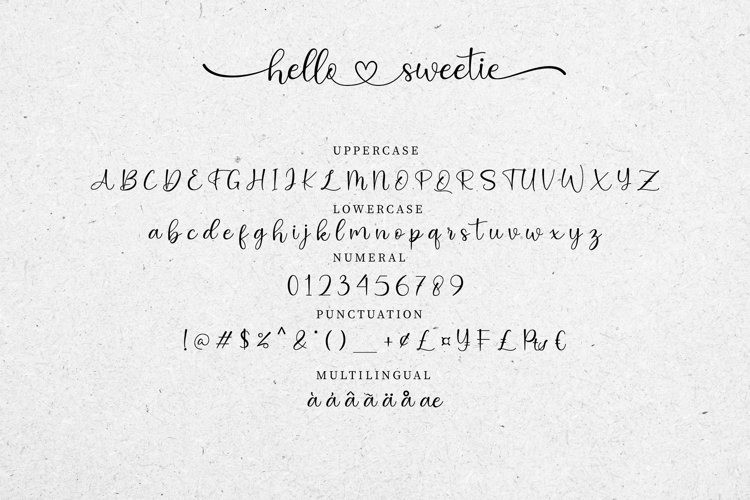 hello ♡ sweetie
UPPERCASE
A B C D E F G H I J K L M N O P Q R S T U V W X Y Z
LOWERCASE
a b c d e f g h i j k l m n o p q r s t u v w x y z
NUMERAL
0 1 2 3 4 5 6 7 8 9
PUNCTUATION
! @ # $ % ^ & * ( ) _ + ¢ £ ¤ ¥ ₣ £ ₧ €
MULTILINGUAL
à á â ã ä å æ